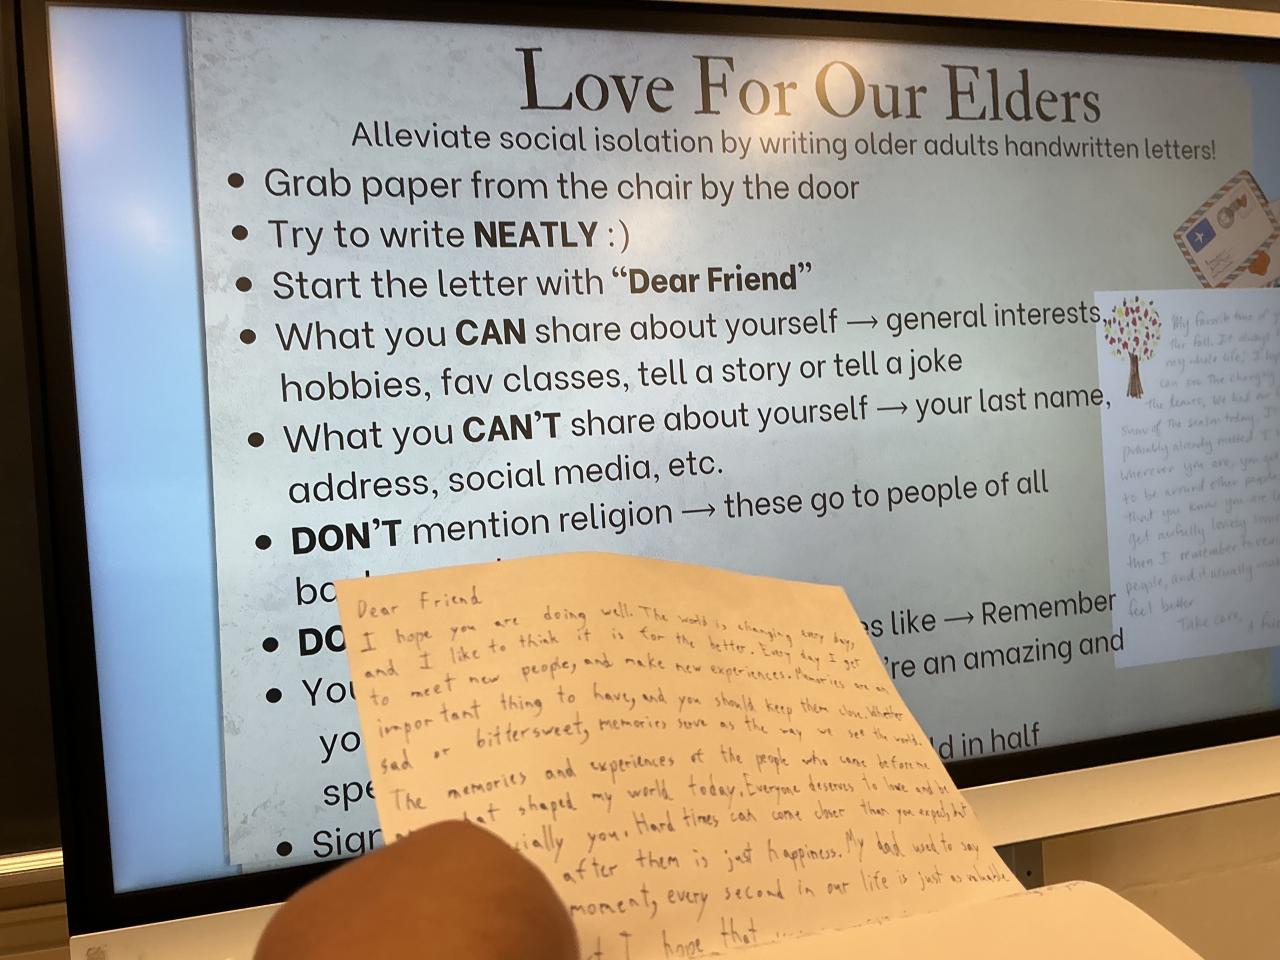 Love For Our Elders
Alleviate social isolation by writing older adults handwritten letters!
• Grab paper from the chair by the door
• Try to write NEATLY :)
• Start the letter with “Dear Friend”
• What you CAN share about yourself → general interests,
hobbies, fav classes, tell a story or tell a joke
• What you CAN'T share about yourself → your last name,
address, social media, etc.
• DON'T mention religion → these go to people of all
• DO
like → Remember
• You
're an amazing and
yo
d in half
spe
• Sign
My favorite time of
the fall. It always
my whole life, I
can see the changing
the leaves. We had our
snow of the season today. I
probably already melted. I
wherever you are, you get
to be around other people
that you know you are
get awfully lonely
then I remember to
people, and it usually
feel better.
Take care,
Dear Friend
I hope you are doing well. The world is changing every day,
and I like to think it is for the better. Every day I get
to meet new people, and make new experiences. Memories are an
important thing to have, and you should keep them close. Whether
sad or bittersweet, memories serve as the way we see the world.
The memories and experiences of the people who came before me
shaped my world today. Everyone deserves to love and be
cially you. Hard times can come closer than you expect, but
after them is just happiness. My dad used to say
moment, every second in our life is just as valuable
I hope that